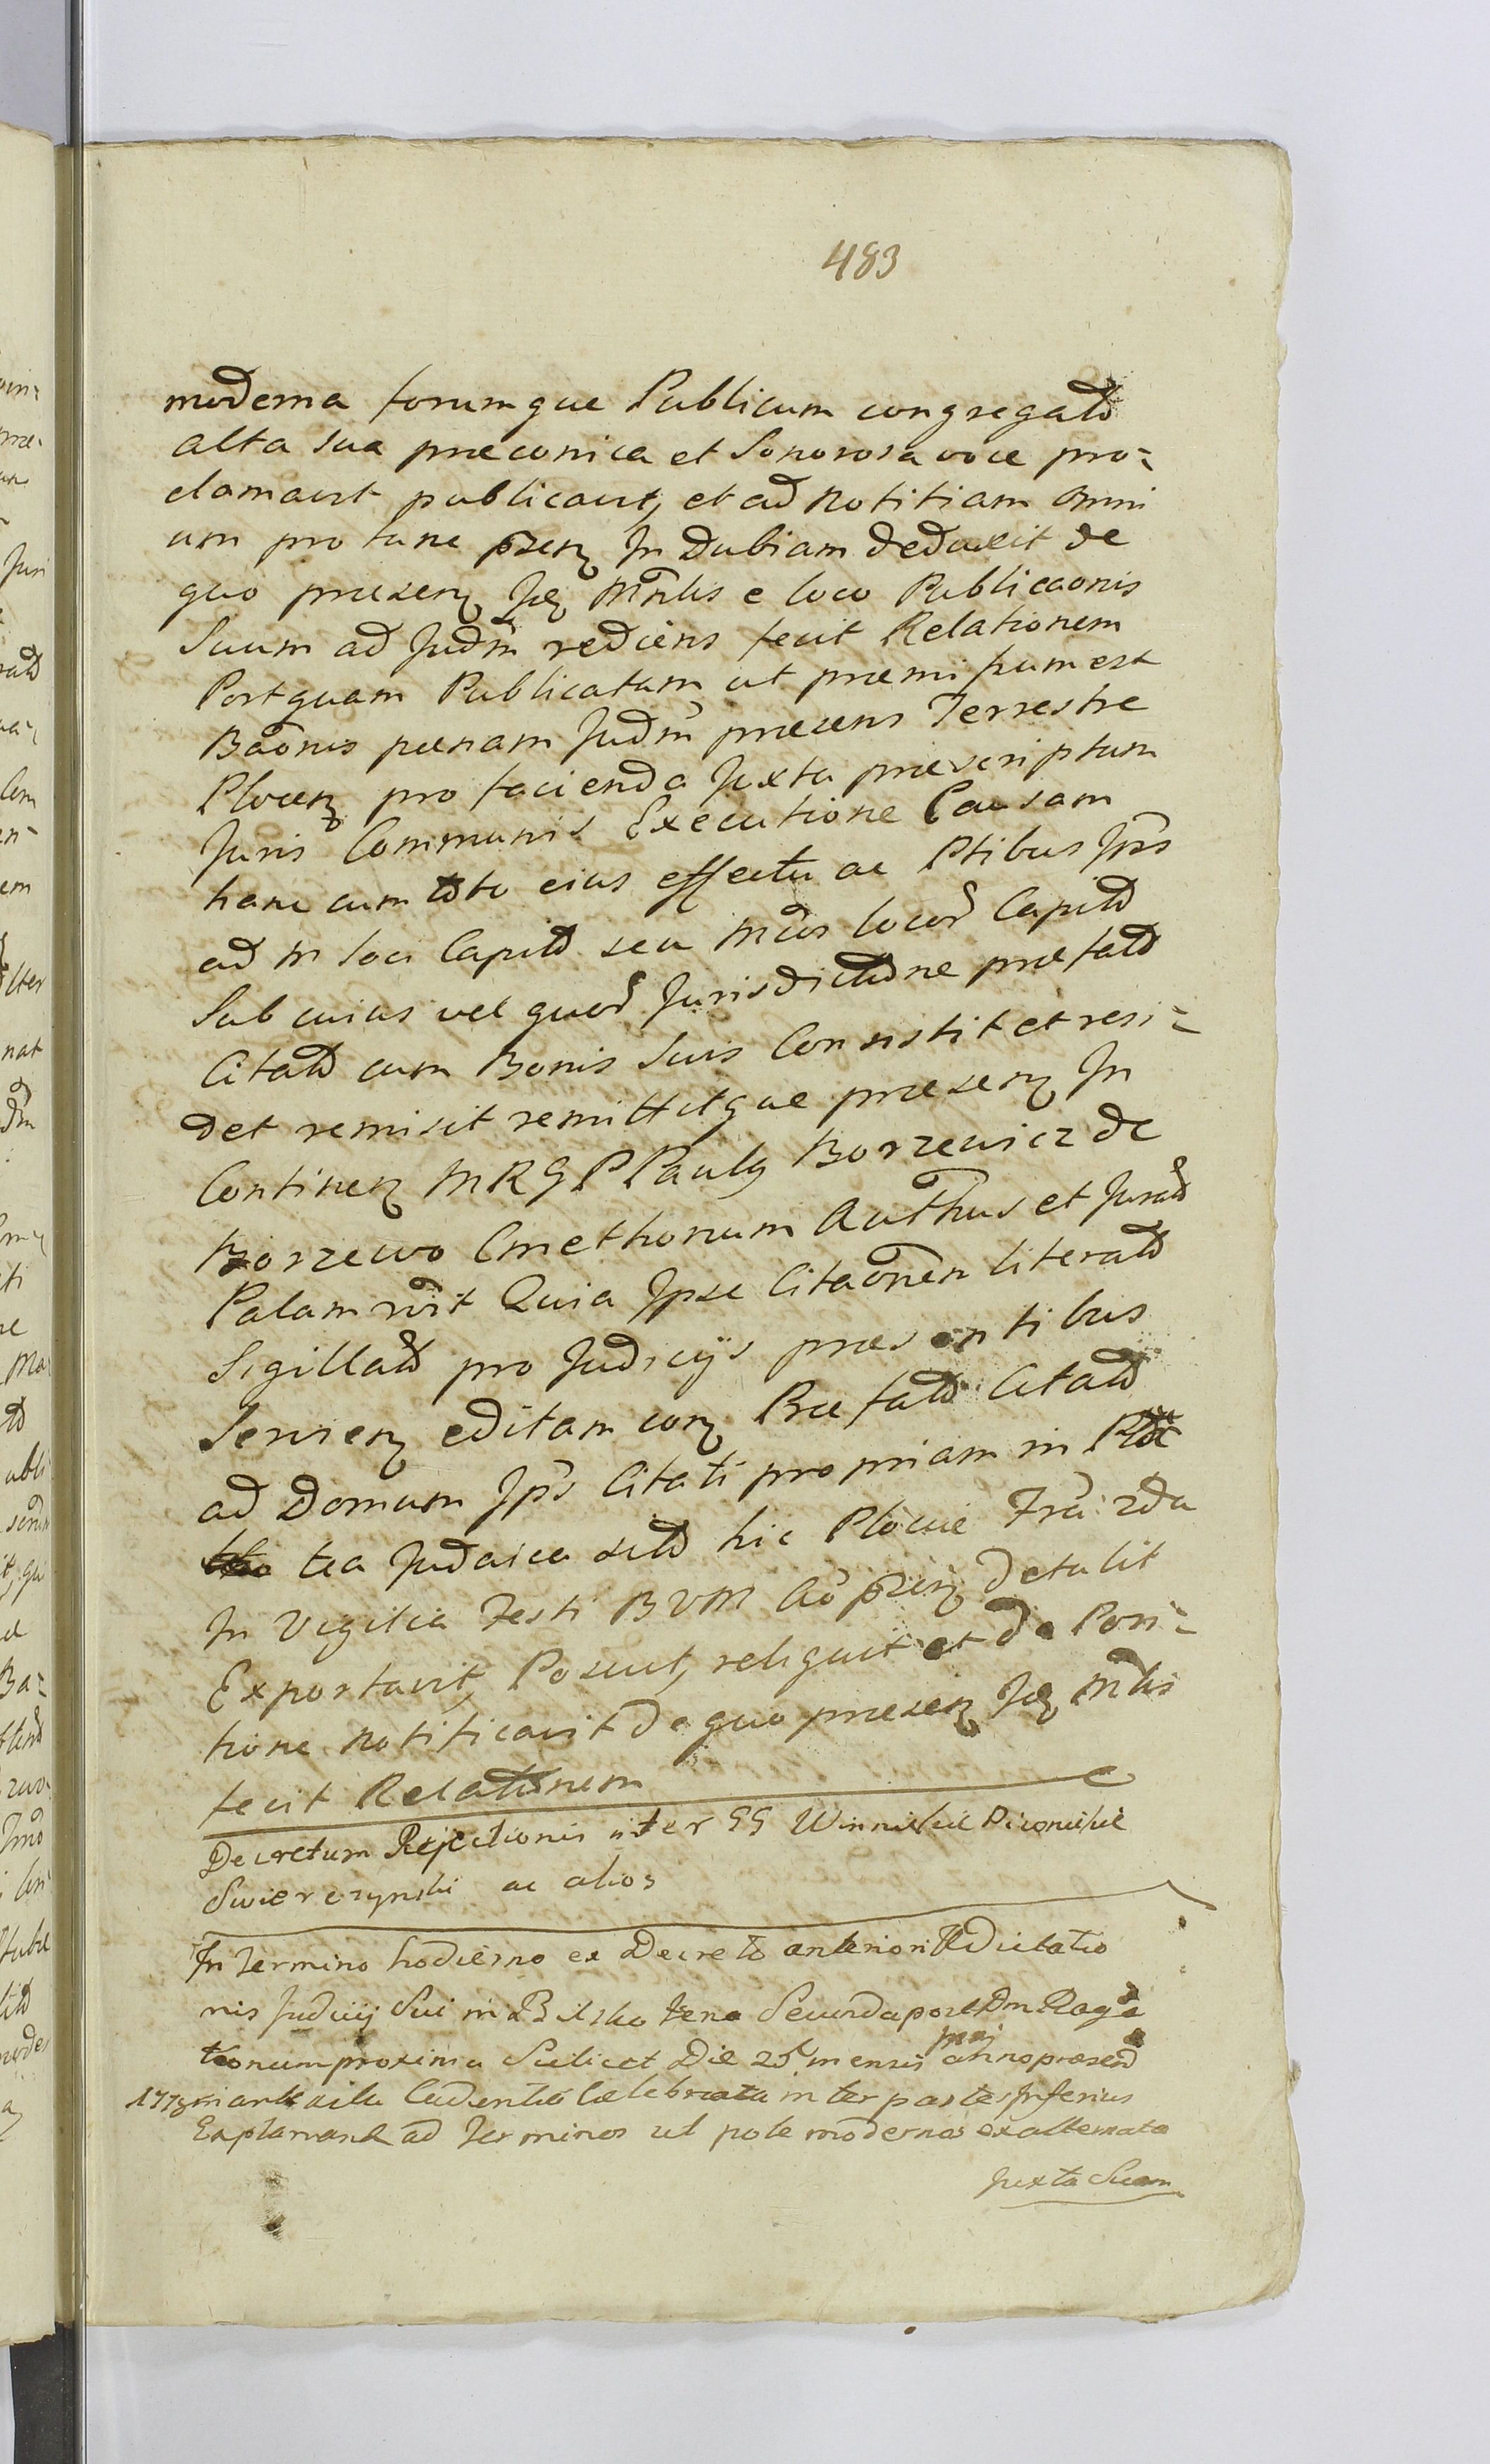 483
moderna forumque Publicum congregatō
alta sua præconica et Sonorosa voce pro=
clamavit publicavit, et ad Notitiam Omni
um pro tunc p̄senz In Dubiam deduxit de
quo præsenz Jez Mnlis e loco Publicaōnis
Suum ad Judm rediens fecit Relationem
Postquam Publicatam ut præmissum est
Baōnis pœnam Judm præsens Terrestre
Plocenz pro facienda Juxta præscriptum
Juris Communis Executione Causam
hanc cum toto eius effectu ac Ptibus Jps
ad M loci Capitō seu Mcos locor Capitō
Sub cuius vel quor Jurisdictōne præfatō
Citatō cum Bonis Suis Consistit et resi=
det remisit remittitque præsenz In
Continenz MRGPPaulg Borzewicz de
Borzewo Cmethonum Authus et Juratō
Palam rōit Quia Ipse Citaōnem literatō
Sigillatō pro Judicijs præsentibus
Servienz editam conz Præfatō Citatō
ad Domum Jps Citati propriam in Pla
tea Judaica sitō hic Plociæ Fra 2da
In Vigilia Festi BVM Ao p̄senz detulit
Exportavit, Posuit, reliquit et de Posi=
tione notificavit de quo præsenz Jez Mlis
fecit Relatōnem
Decretum Rejectionis inter GG Winnickie
Swierczynski ac alios
In Termino hodierno ex Decreto anteriori
nis Judicij Sui in Bilsko Fena Secunda post Dm Roga
tionum proxima Scilicet Die 25 mensis Maj anno præsend
1778 celebrata inter partes Inferius
ad Terminos ut pote modernos
Juxta Suam